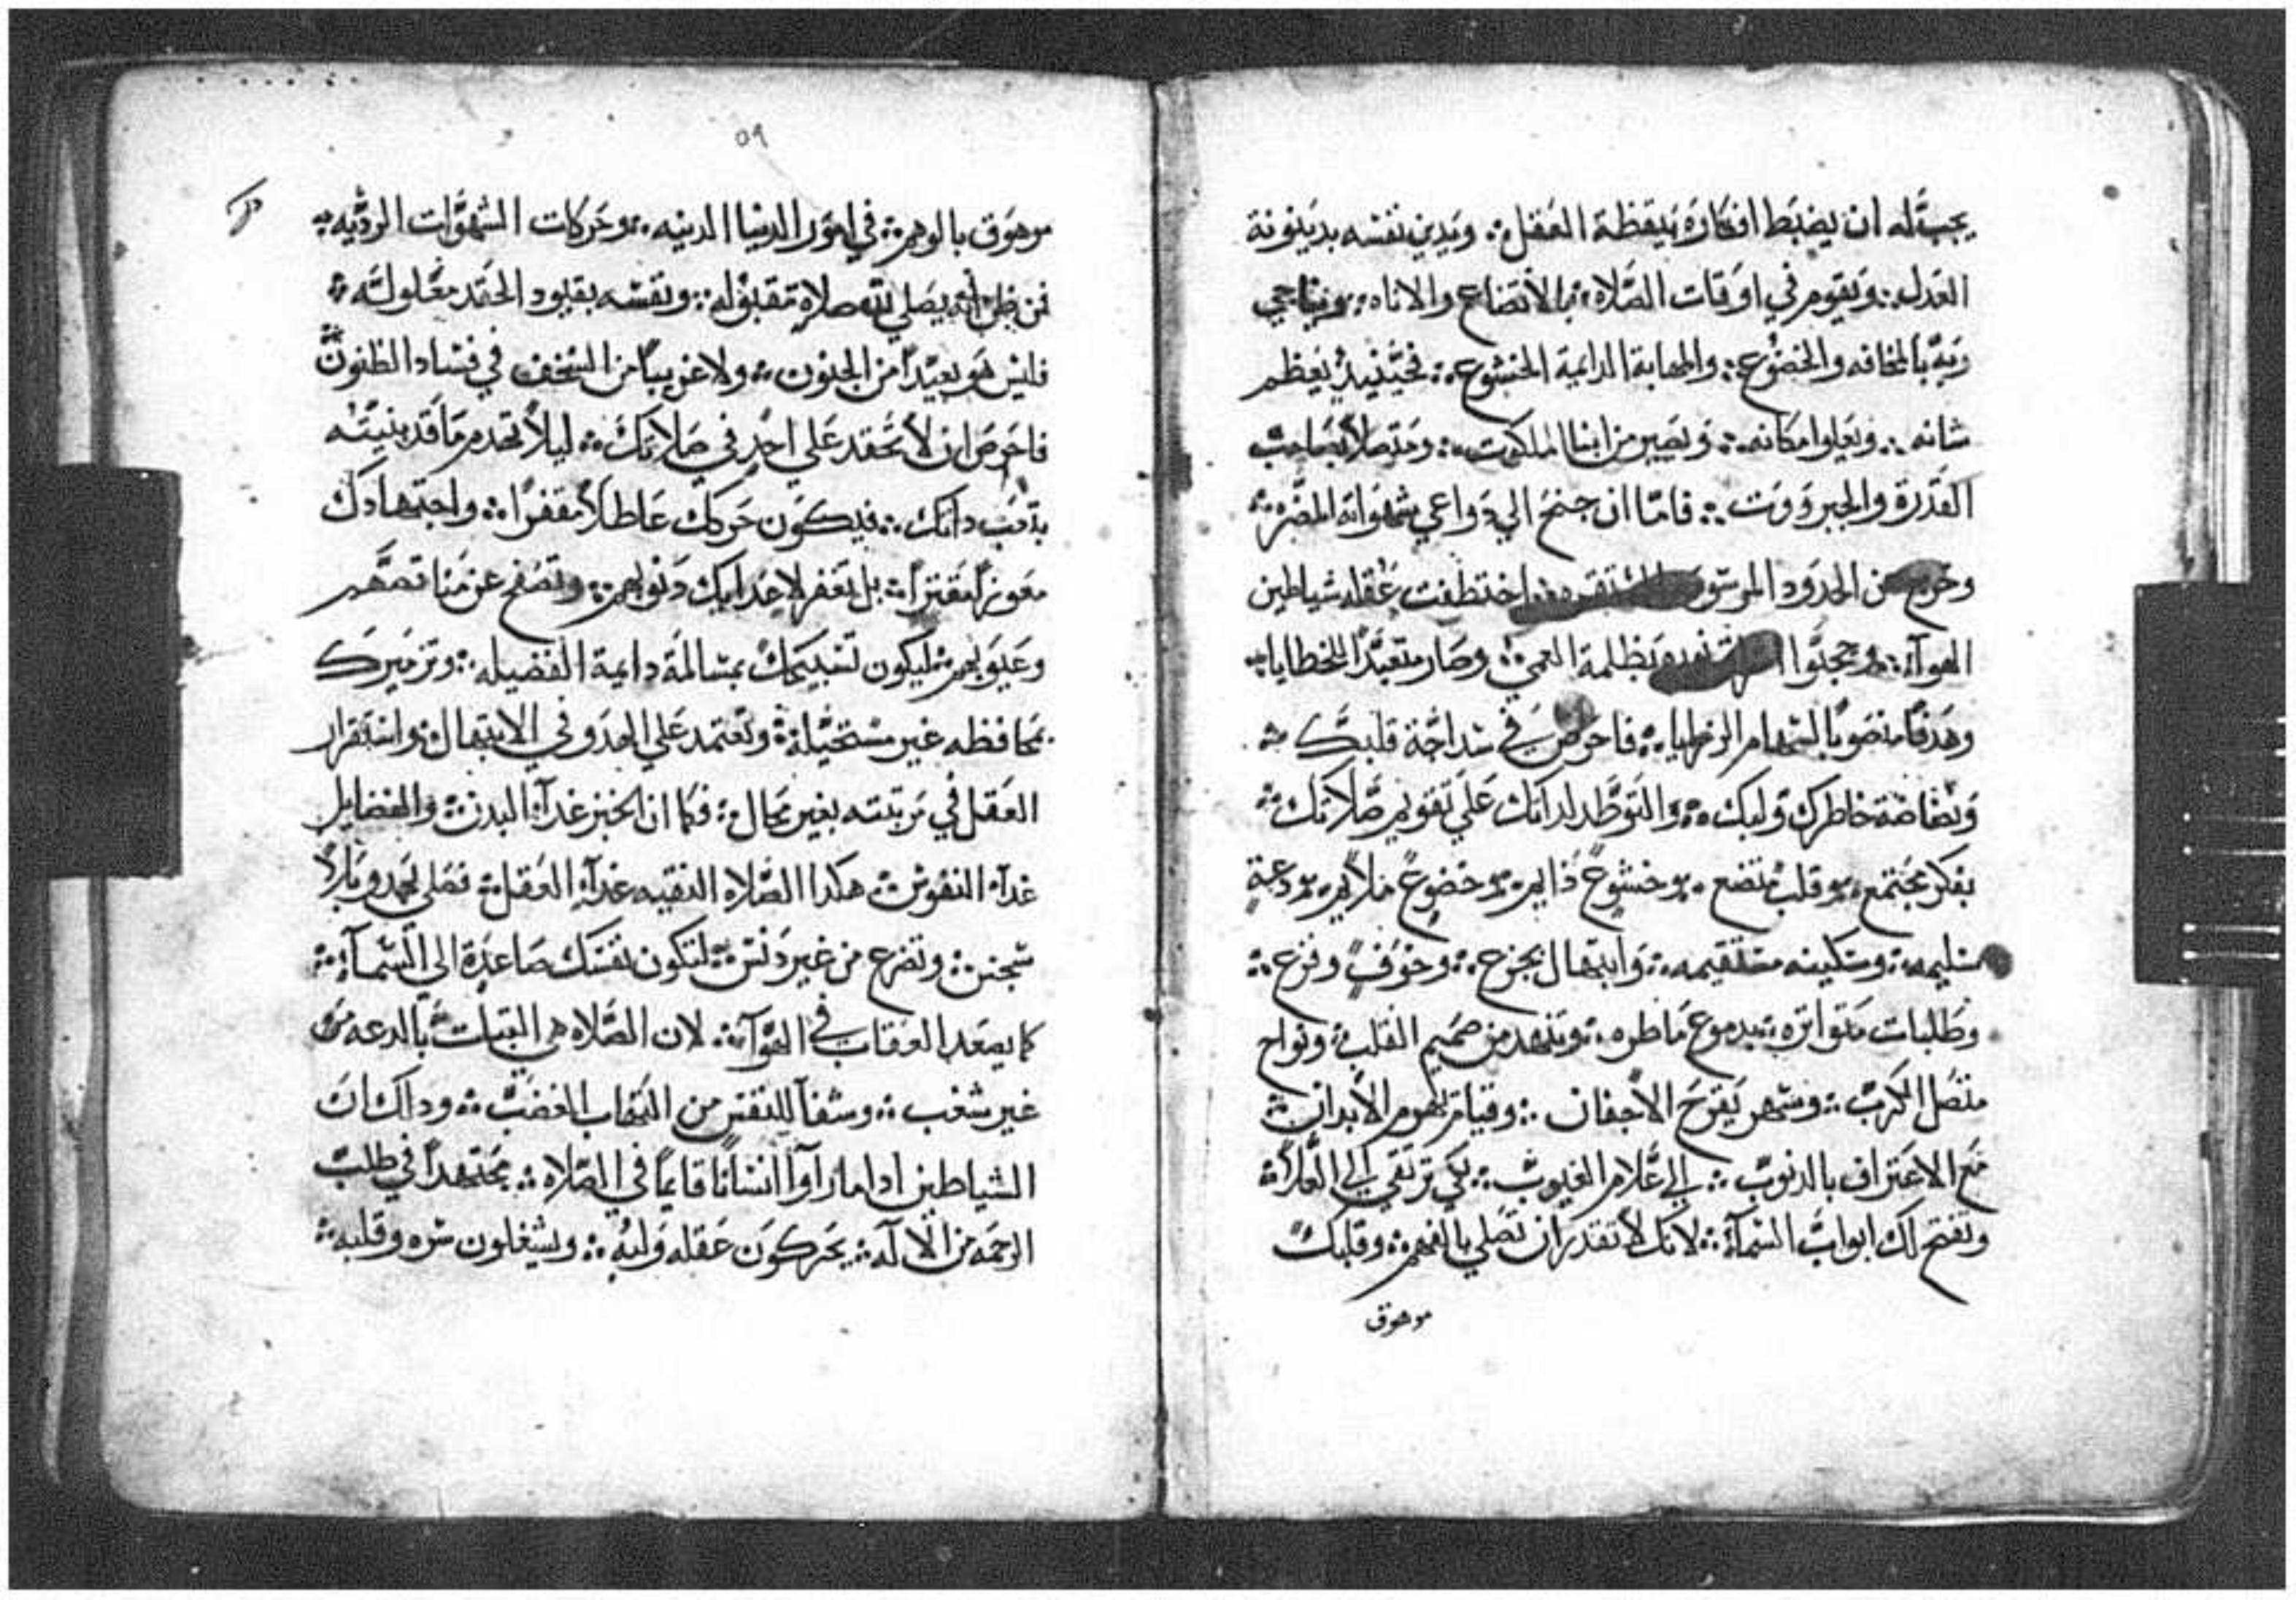 يجب له ان يضبط افكاره بيقظة العقل ؞ ويدين نفسه بدينونة
العدل ؞ ويقوم في اوقات الصلاه ؞ بالأتضاع والاناه ؞ ويناجي
ربه بالمخافه والخضوع ؞ والمهابة الدايمة الخشوع ؞ فحينيذ يعظم
شانه ؞ ويعلوا مكانه ؞ ويصير من ابنا الملكوت ؞ ومتصلاً بصاحب
القدرة والجبروت ؞ فاما ان جنح الي دواعي شهواته المضره ؞
وخرج عن الحدود المرسومه اختطفت عقله شياطين
الهوآء ؞ وحجبوا بظلمة العمي ؞ وصار متعبداً للخطايا ؞
وهدفا منصوبا لسهام الرزايا ؞ فاحرص في سداجة قلبك ؞
خاطرك ولبك ؞ والتوطد لداتك علي تقويم صلاتك ؞
بفكر مجتمع ؞ وقلب متضع ؞ وخشوع دايم ؞ وخضوع ملايم ؞ ودعة
سليمه ؞ وسكينه مستقيمه ؞ وابتهال بجزع ؞ وخوف وفزع ؞
وطلبات متواتره ؞ بدموع ماطره ؞ وتنهد من صميم القلب ؞ ونواح
متصل الكرب ؞ وسهر يقرح الأجفان ؞ وقيام بهموم الأبدان ؞
مع الاعتراف بالدنوب ؞ الي علام الغيوب ؞ لكي ترتقي الي العلا ؞
وتفتح لك ابواب السمآء ؞ لانك لا تقدر ان تصلي بالفهم ؞ وقلبك
موهوق
٥٩
موهوق بالوهم ؞ في امور الدنيا الدنيه ؞ وحركات الشهوات الرديه ؞
فمن يظن انه يصلي لله صلاه مقبوله ؞ ونفسه بقيود الحقد مغلوله ؞
فليس هو بعيداً من الجنون ؞ ولا غريباً من السخف في فساد الظنون
فاحرص ان لا تحقد علي احدٍ في صلاتك ؞ ليلا تهدم ما قد بنيته
بتعب داتك ؞ فيكون حرثك عاطلاً مقفراً ؞ واجتهادك
معوزاً مقتراً ؞ بل تغفر لاعدايك دنوبهم ؞ وتصفح عن مناقصهم
وعيوبهم ؞ ليكون تسبيحك بمسالمة دايمة الفضيله ؞ وتزميرك
بمحافظه غير مستحيلة ؞ وتعتمد علي الهدو في الابتهال ؞ واستقرار
العقل في مرتبته بغير محال ؞ فكما ان الخبز غدآء البدن ؞ والفضايل
غدآء النفوس ؞ هكدا الصلاه النقيه غدآء العقل ؞ فصلي بهدو بلا
سجس ؞ وتضرع من غير دنس ؞ لتكون نفسك صاعدة الي السمآء ؞
كما يصعد العقاب في الهوآء ؞ لان الصلاه هي الثبات بالدعه من
غير شغب ؞ وشفآ للنفس من التهاب الغضب ؞ وداك ان
الشياطين ادا ما راوآ انساناً قايماً في الصلاه ؞ مجتهداً في طلب
الرحمه من الاله ؞ يحركون عقله ولبه ؞ ويشغلون سره وقلبه ؞